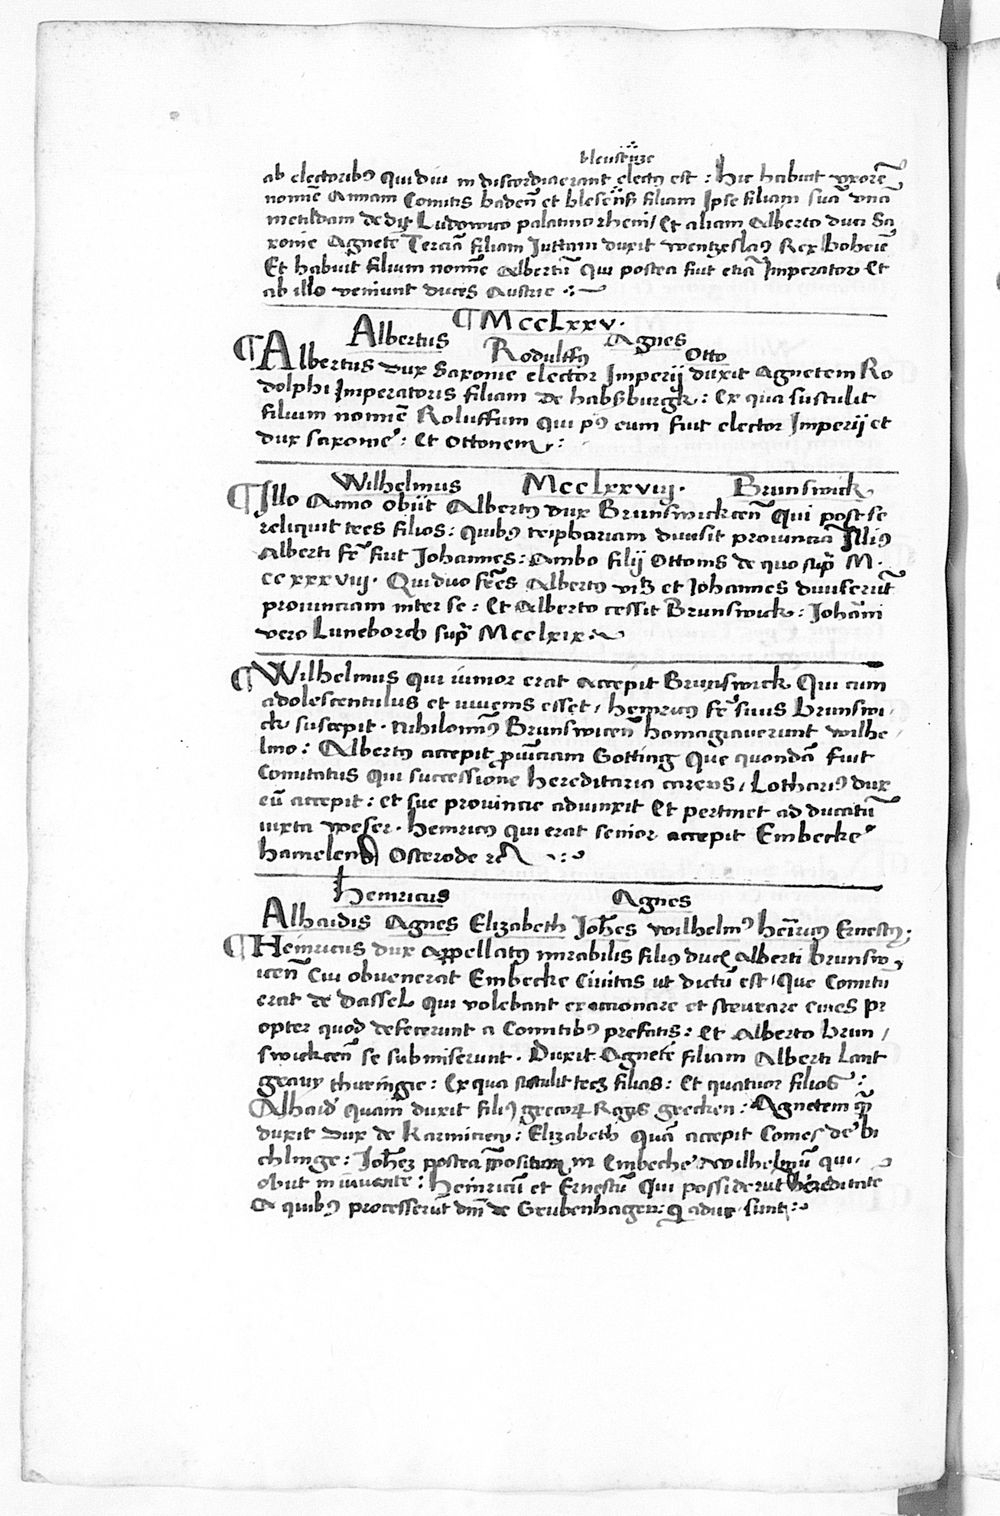 blensenze
ab electoribꝰ qui diu in discordia erant electꝰ est : hic habuit vxorē
nomīe Annam Comitis badenn̄ et blesen̄s filiam Ipse filiam suā vnā
metildam dedit Ludowico palatino rheni / Et aliam Alberto duci Sa
xonie Agnetē Terciā filiam Juttam duxit wentzeslaꝰ Rex boheīe
Et habuit filium nomīe Albertū qui postea fuit etiā Imperator Et
ab illo veniunt duces Austrie
¶ MccLxxv·
Albertus Rodulffꝰ Agnes Otto
¶ Albertus dux Saxonie elector Imperij duxit Agnetem Ro
dolphi Imperatoris filiam de habsburgk : Ex qua sustulit
filium nomīe Roluffum qui pꝰ eum fuit elector Imperij et
dux saxonie : Et Ottonem :
Wilhelmus MccLxxviij· Brunswick
¶ Illo Anno obijt Albertꝰ dux Brunswickcen̄ Qui post se
reliquit tres filios : quibꝰ tripharìam diuisit prouinciā Illiꝰ
Alberti fr̄ fuit Johannes : Ambo filij Ottonis de quo supͣ M·
ccxxxviij· Qui duo fr̄es Albertꝰ viꝫ et Johannes diuiserūt
prouinciam inter se : Et Alberto cessit Brunswick : Johāni
vero Luneborch supͣ Mcclxix :
¶ Wilhelmus qui iunior erat accepit Brunswick Qui cum
adolescentulus et iuuenis esset / henricꝰ fr̄ suus brunswi
ck suscepit · nihilominꝰ Brunswicen̄ homagiauerunt wilhe
lmo : Albertꝰ accepit ꝓuīciam Gotting Que quondā fuit
Comitatus Qui successione hereditaria carens / Lothariꝰ dux
eū accepit : et sue prouincie adiunxit Et pertinet ad ducatū
iuxta weser · henricꝰ qui erat senior accepit Embecke
hamelen Osterode ꝛc
henricus Agnes
Alhaidis Agnes Elizabeth Joh̄es wilhelmꝰ hēricꝰ Ernestꝰ
¶ Heinricus dux appellatꝰ mirabilis filiꝰ ducꝭ Alberti brunsw
icen̄ Cui obuenerat Embecke Ciuitas ut dictū est / Que Comitū
erat de dassel qui volebant exactionare et steurare ciues pr
opter quod defecerunt a Comitibꝰ prefatis : Et Alberto brun /
swickcen̄ se submiserunt · Duxit Agnetē filiam Alberti Lant
grauy thuringie : Ex qua sustulit tres filias : Et quatuor filios :
Alhaid̄ quam duxit filiꝰ grecoꝝ Regis grecken : Agnetem qͣ
duxit dux de karnitien : Elizabeth quā accepit Comes de bi
chlinge : Joh̄eꝫ postea p̄positum in Embeche wilhelmū qui
obijt in iuuente : heinricū et Ernestū Qui possiderūt hereditatē
A quibꝰ processerūt dn̄i de Grubenhagen : qͥ adhuc sunt :